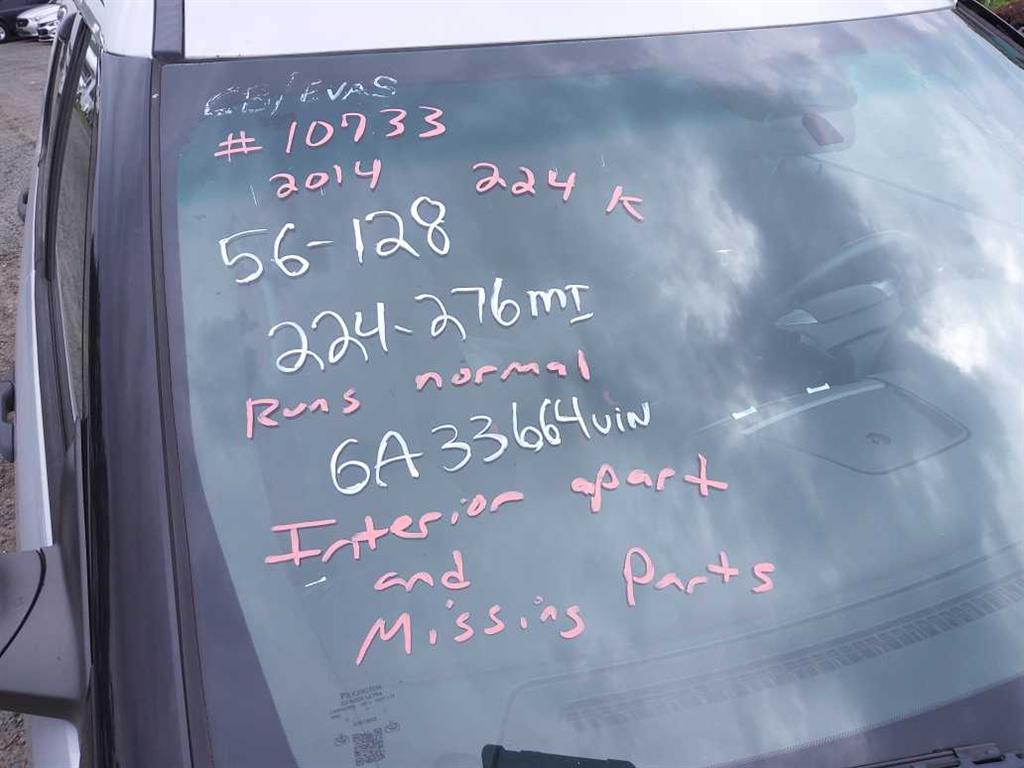 CB/EVAS
# 10733
2014 224 K
56-128
224-276 MI
Runs normal
6A33664 VIN
Interior apart
and
Missing Parts
PILKINGTON